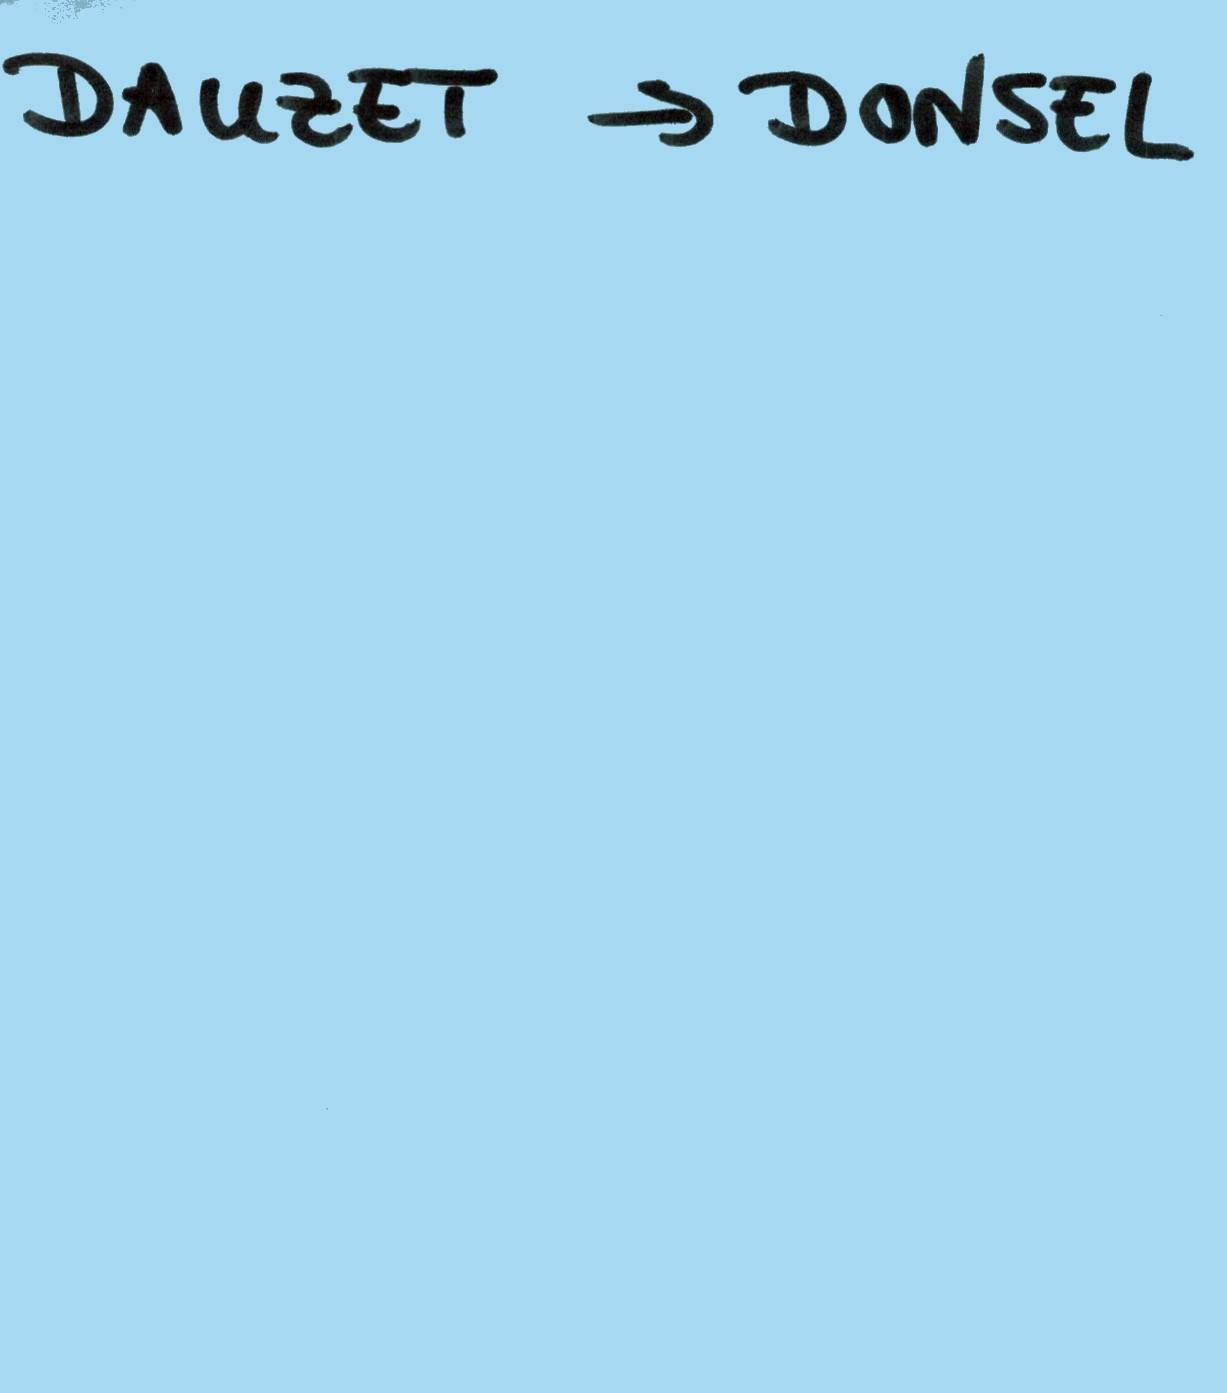 DAUZET → DONSEL